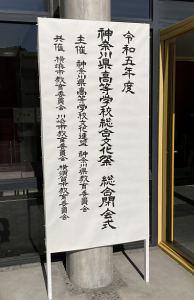 令和五年度
神奈川県高等学校総合文化祭 総合閉会式
主催 神奈川県高等学校文化連盟 神奈川県教育委員会
共催 横浜市教育委員会 川崎市教育委員会 横須賀市教育委員会